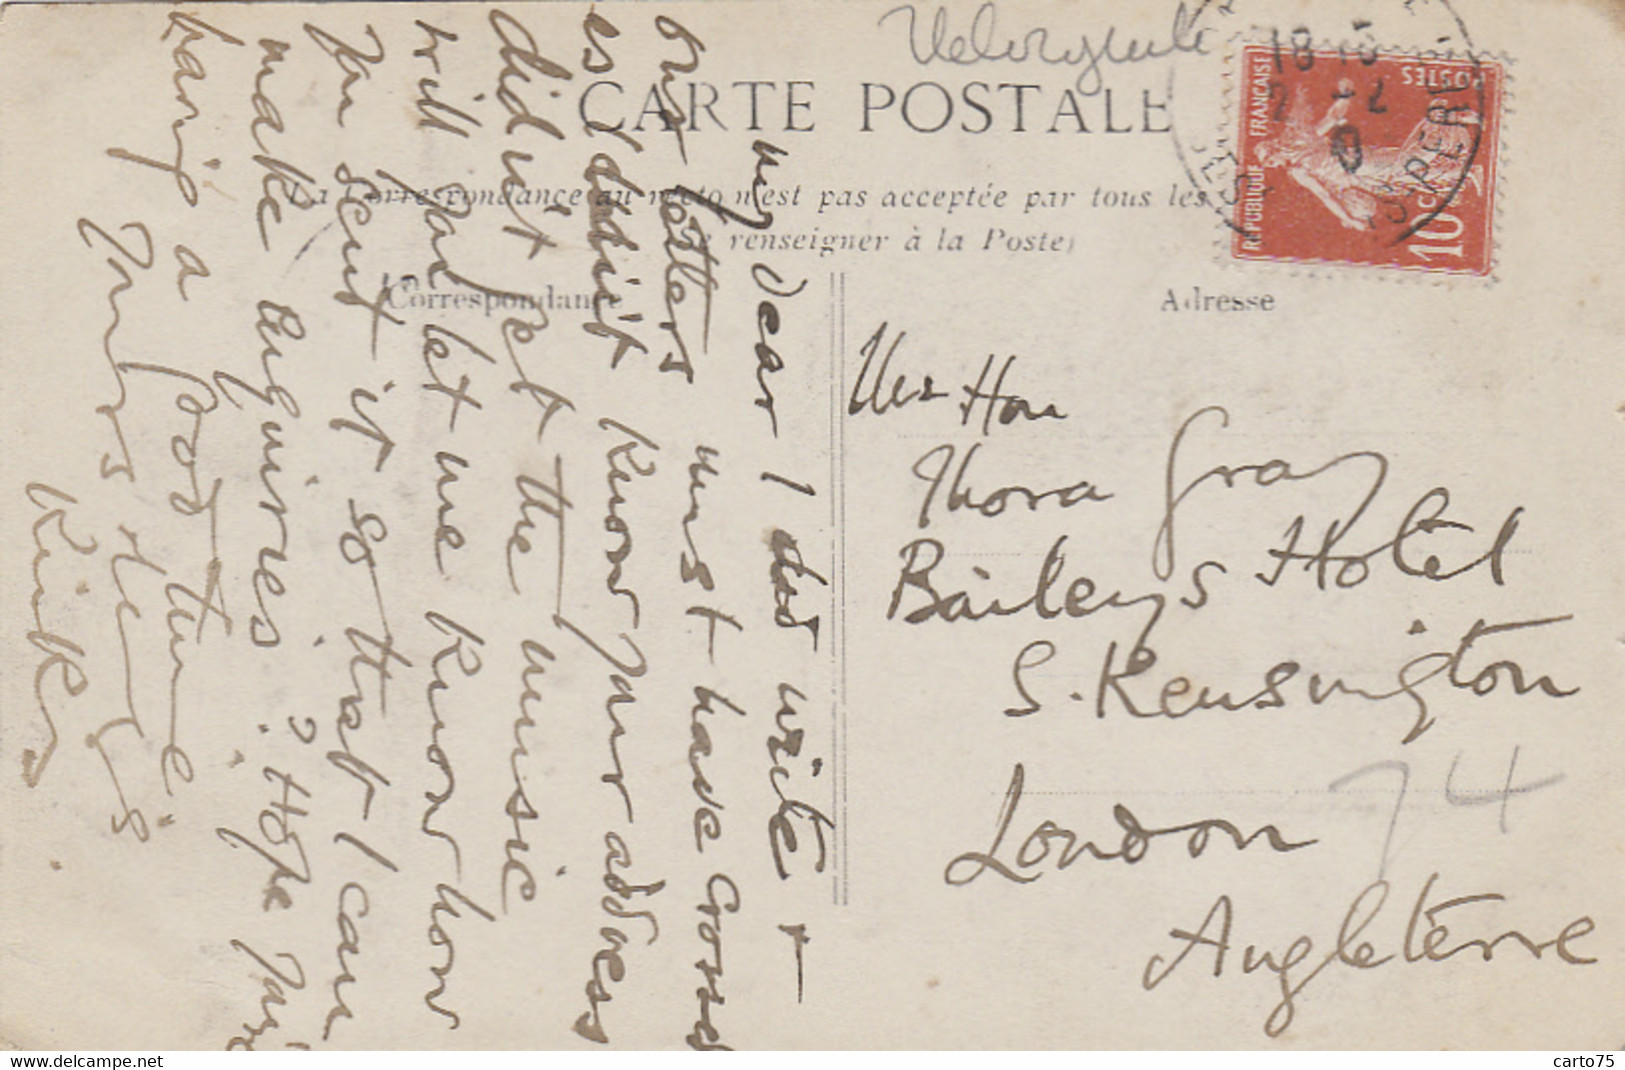 CARTE POSTALE
La Correspondance au recto n'est pas acceptée par tous les
se renseigner à la Poste)
Correspondance
Adresse
RÉPUBLIQUE FRANÇAISE
POSTES
10c
18
my dear I did write +
our letters must have crossed
es I didn't know your address
didn't get the music
will you let me know how
you sent it so that I can
make enquiries? Hope you're
having a good time
Yours
Kinks
Hon
Thora Gray
Baileys Hotel
S. Kensington
London
Angleterre
74
carto75